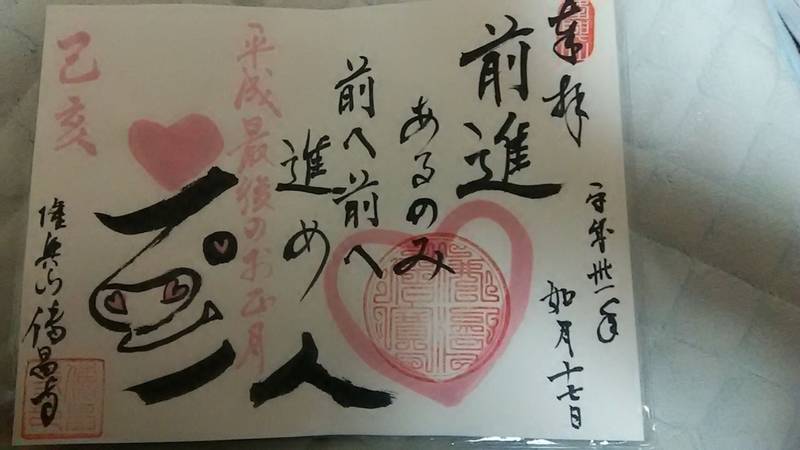 奉拝
平成卅一年
如月十七日
前進
あるのみ
前へ前へ
進め
人
平成最後のお正月
己亥
傳昌寺